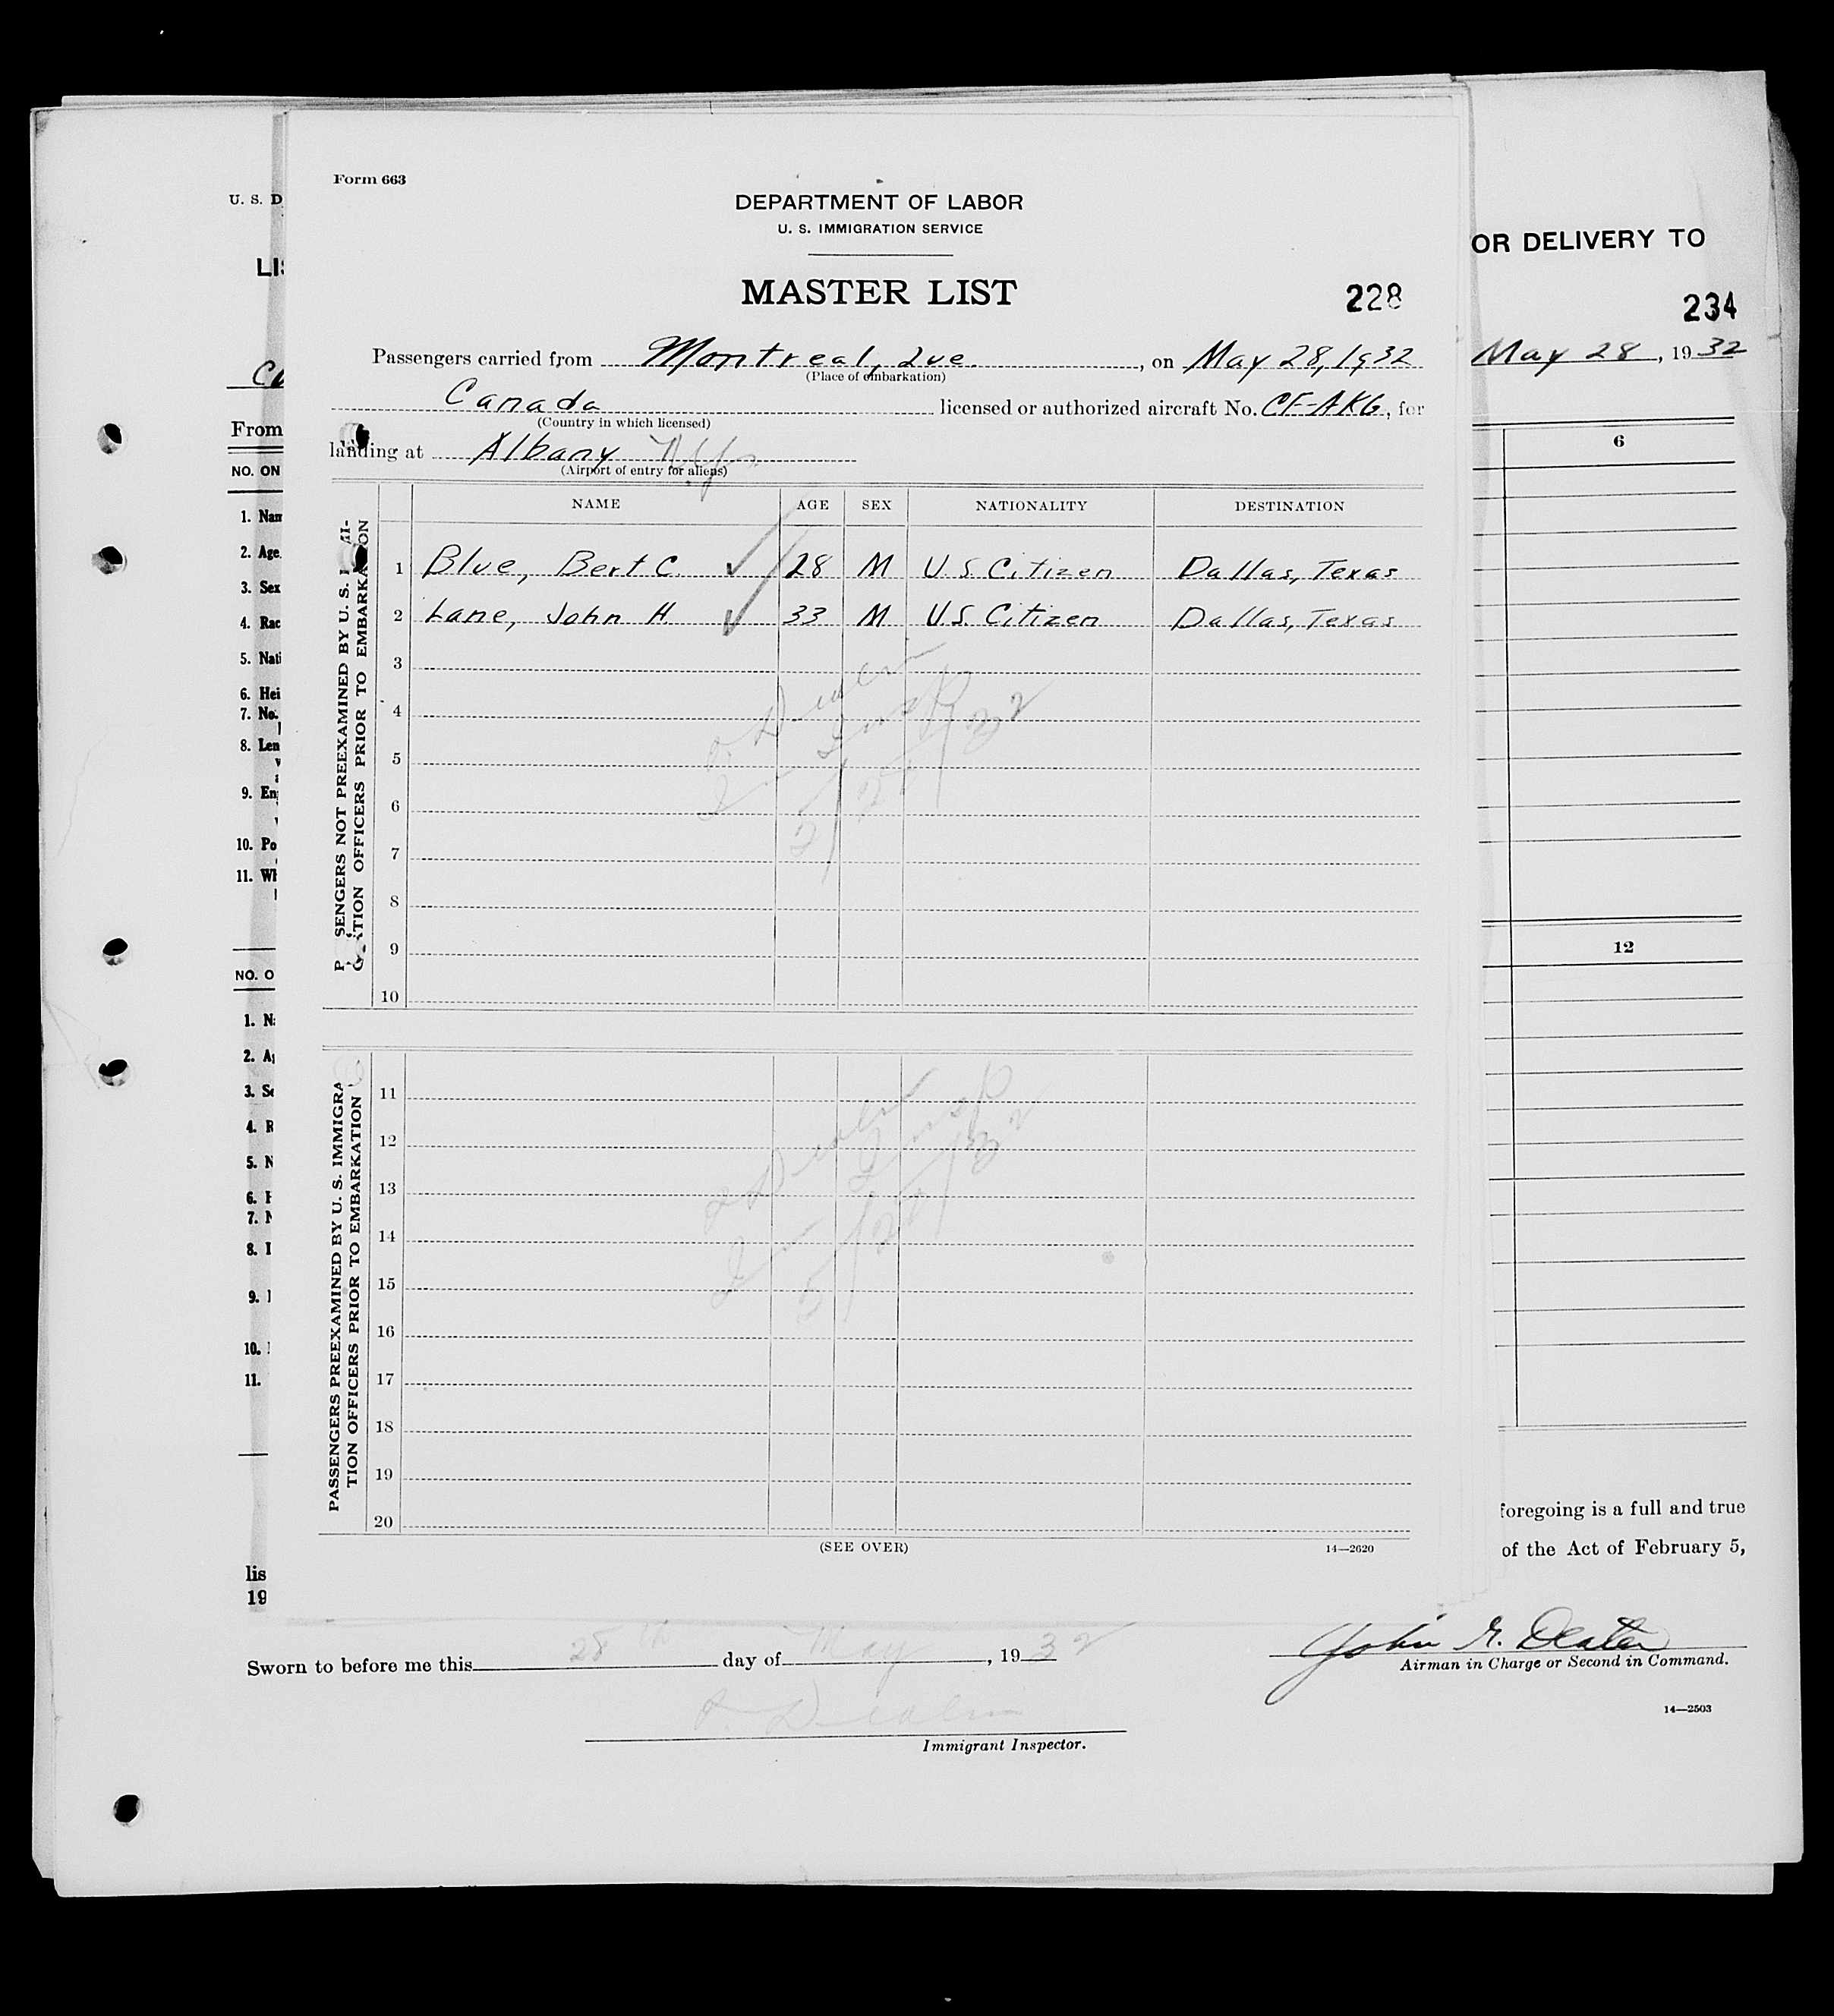 Form 663
DEPARTMENT OF LABOR
U. S. IMMIGRATION SERVICE
MASTER LIST
228
Passengers carried from Montreal, Que. , on May 28, 1932
(Place of embarkation)
Canada licensed or authorized aircraft No. CF-AKG, for
(Country in which licensed)
landing at Albany N.Y.
(Airport of entry for aliens)
NAME AGE SEX NATIONALITY DESTINATION
1 Blue, Bert C. 28 M U.S. Citizen Dallas, Texas
2 Lane, John H 33 M U.S. Citizen Dallas, Texas
3
4
5
6
7
8
9
10
SENGERS NOT PREEXAMINED BY U. S.
TION OFFICERS PRIOR TO EMBARKATION
Insp
5/28/32
11
12
13
14
15
16
17
18
19
20
PASSENGERS PREEXAMINED BY U. S. IMMIGRA
TION OFFICERS PRIOR TO EMBARKATION
Insp
5/28/32
(SEE OVER) 14—2620
U. S. D
LIS
OR DELIVERY TO
234
May 28, 1932
From
NO. ON
6
1. Nam
2. Age
3. Sex
4. Rac
5. Nati
6. Hei
7. No.
8. Len
9. En
10. Po
11. Wh
NO. O
12
1. N
2. A
3. Se
4. R
5. N
6. H
7. N
8. L
9.
10.
11.
foregoing is a full and true
lis
of the Act of February 5,
19
Sworn to before me this 28th day of May, 1932
John G. Deater
Airman in Charge or Second in Command.
14—2503
Immigrant Inspector.